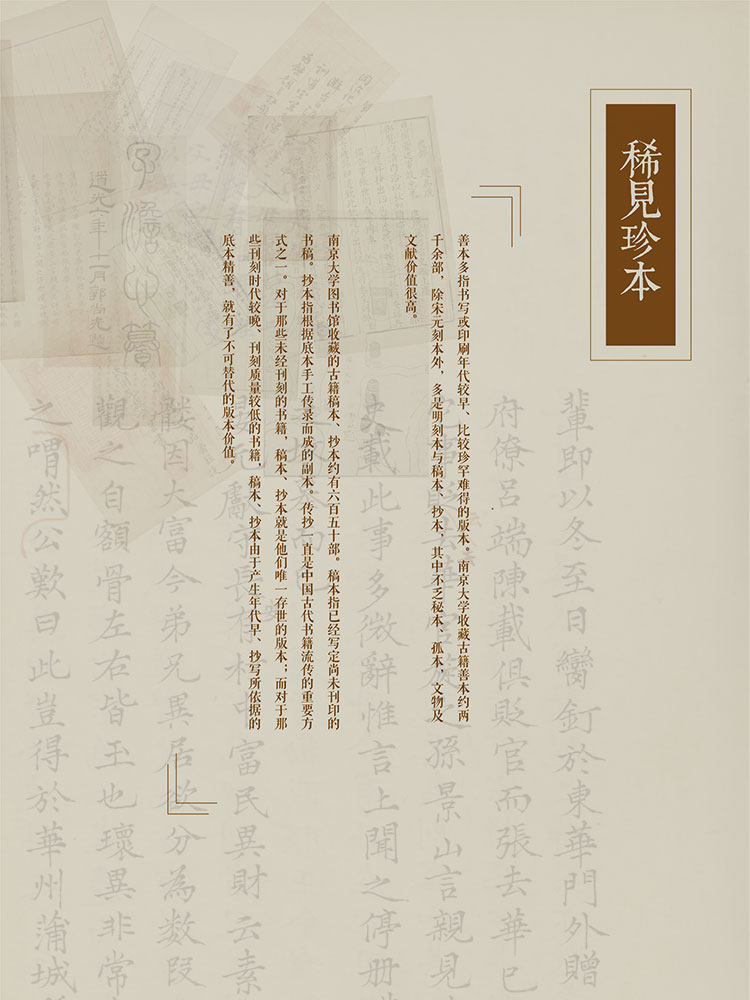 稀見珍本
善本多指书写或印刷年代较早、比较珍罕难得的版本。南京大学收藏古籍善本约两
千余部，除宋元刻本外，多是明刻本与稿本、抄本，其中不乏秘本、孤本，文物及
文献价值很高。
南京大学图书馆收藏的古籍稿本、抄本约有六百五十部。稿本指已经写定尚未刊印的
书稿。抄本指根据底本手工传录而成的副本。传抄一直是中国古代书籍流传的重要方
式之一。对于那些未经刊刻的书籍，稿本、抄本就是他们唯一存世的版本；而对于那
些刊刻时代较晚、刊刻质量较低的书籍，稿本、抄本由于产生年代早、抄写所依据的
底本精善，就有了不可替代的版本价值。
輩即以冬至日釘於東華門外贈
府僚呂端陳載俱貶官而張去華已
孫景山言親見
史載此事多微辭惟言上聞之停册
富民異財云素
髅因大富今弟兄異居欲分為數段
觀之自額骨左右皆玉也瓌異非常
之喟然公歎曰此豈得於華州蒲城